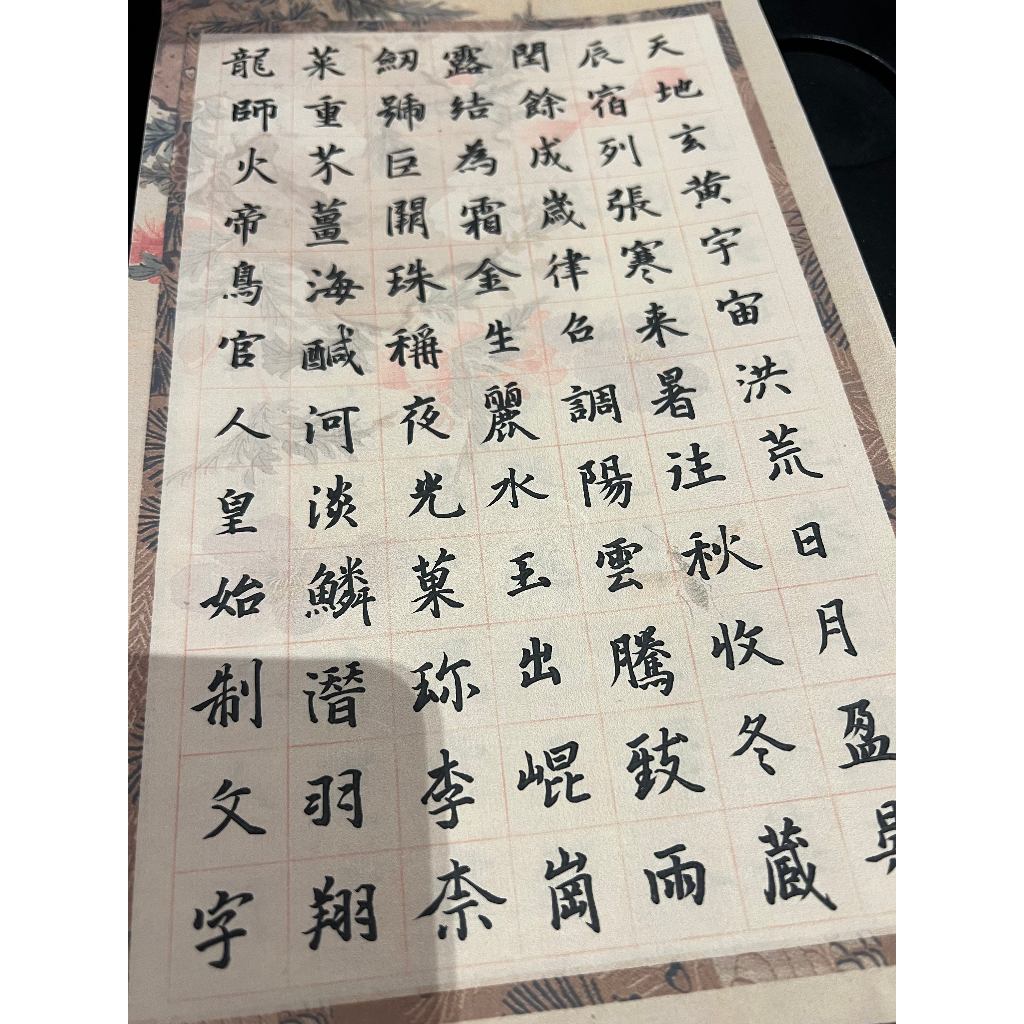 天地玄黄宇宙洪荒日月盈
辰宿列張寒来暑往秋收冬蔵
閏餘成歲律召調陽雲騰致雨
露結為霜金生麗水玉出崐崗
釼號巨闕珠稱夜光菓珎李柰
菜重芥薑海醎河淡鱗潛羽翔
龍師火帝鳥官人皇始制文字